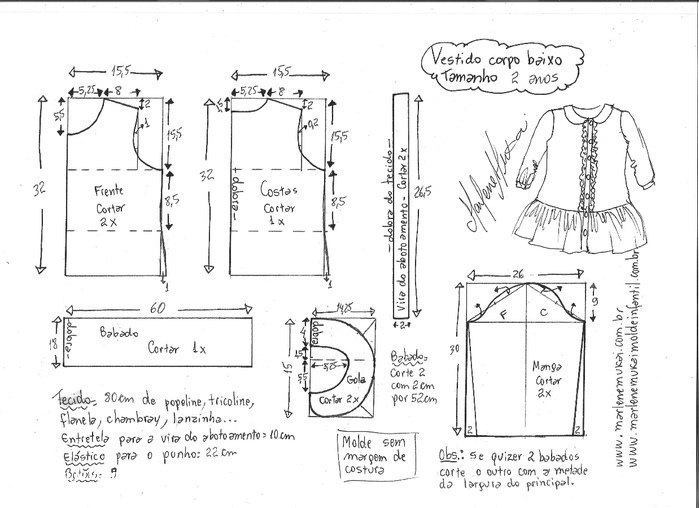 Vestido corpo baixo
Tamanho 2 anos
15,5
5,25
8
2
5,5
1
15,5
32
Frente
Cortar
2x
8,5
1
15,5
5,25
8
2
0,2
15,5
32
dobra
Costas
Cortar
1x
8,5
1
dobra do tecido
Vira do abotoamento - Cortar 2x
26,5
2
60
18
dobra
Babado
Cortar 1x
15
dobra
5,25
Gola
Cortar 2x
Babado:
Corte 2
com 2cm
por 52cm
26
9
F
C
30
Manga
Cortar
2x
2
2
Tecido: 80cm de popeline, tricoline,
flanela, chambray, lanzinha...
Entretela para a vira do abotoamento: 10cm
Elástico para o punho: 22cm
Botões: 9
Molde sem
margem de
costura
Obs.: Se quizer 2 babados
corte o outro com a metade
da largura do principal.
www.marlenemukai.com.br
www.marlenemukaimoldeinfantil.com.br